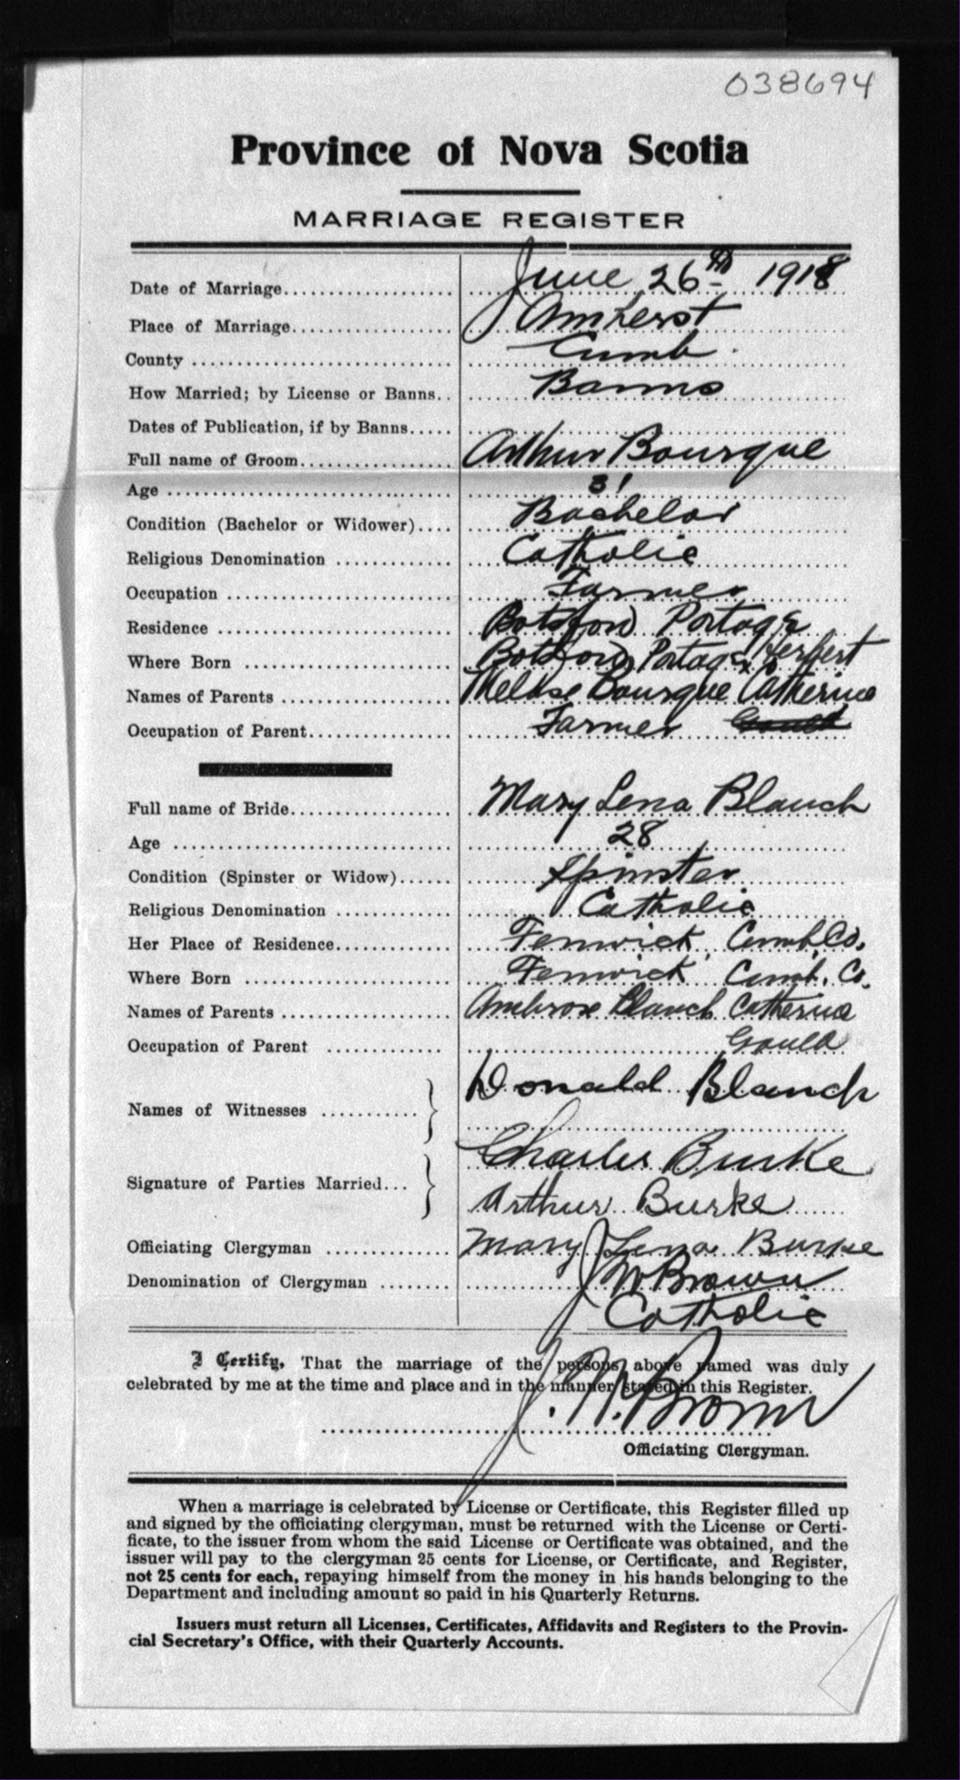 038694
Province of Nova Scotia
MARRIAGE REGISTER
Date of Marriage.................... June 26th 1918
Place of Marriage................... Amherst
County .............................. Cumb.
How Married; by License or Banns.. Banns
Dates of Publication, if by Banns.....
Full name of Groom.................. Arthur Bourque
Age .................................. 31
Condition (Bachelor or Widower).... Bachelor
Religious Denomination ............. Catholic
Occupation .......................... Farmer
Residence ........................... Botsford Portage
Where Born ........................ Botsford Portage Herbert
Names of Parents ................... Bourque Catherine
Occupation of Parent................ Farmer Gould
Full name of Bride.................. Mary Lena Blanch
Age ................................. 28
Condition (Spinster or Widow)...... Spinster
Religious Denomination ............. Catholic
Her Place of Residence.............. Fenwick Cumb. Co.
Where Born ........................ Fenwick Cumb. Co.
Names of Parents ................... Ambrose Blanch Catherine
Occupation of Parent .............. Gould
Donald Blanch
Names of Witnesses ...........
Charles Burke
Signature of Parties Married...
Arthur Burke
Officiating Clergyman ............. Mary Lena Burke
Denomination of Clergyman ........ J W Brown
Catholic
I Certify, That the marriage of the persons above named was duly
celebrated by me at the time and place and in the manner stated in this Register.
J. W. Brown
Officiating Clergyman.
When a marriage is celebrated by License or Certificate, this Register filled up
and signed by the officiating clergyman, must be returned with the License or Certi-
ficate, to the issuer from whom the said License or Certificate was obtained, and the
issuer will pay to the clergyman 25 cents for License, or Certificate, and Register,
not 25 cents for each, repaying himself from the money in his hands belonging to the
Department and including amount so paid in his Quarterly Returns.
Issuers must return all Licenses, Certificates, Affidavits and Registers to the Provin-
cial Secretary's Office, with their Quarterly Accounts.